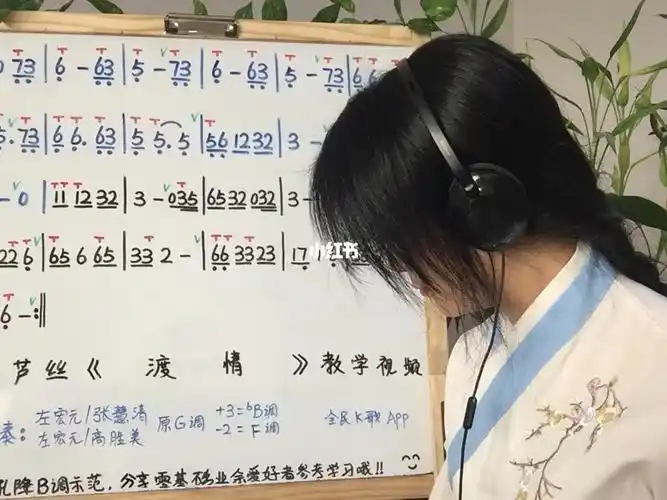 0 73 | 6 - 63 | 5 - 73 | 6 - 63 | 5 - 73 | 6 6
5. 73 | 6 6. 63 | 5 5. 5 | 56 12 32 | 3 -
- 0 | 11 12 32 | 3 - 035 | 65 32 032 | 3 -
22 6 | 65 6 65 | 33 2 - | 66 33 23 | 17
小红书
6 - :||
芦丝《 渡 情 》教学视频
奏: 左宏元/张慧清 原G调 +3=ᵇB调 全民K歌 APP
左宏元/高胜美 -2=F调
孔降B调示范,分享零基础业余爱好者参考学习哦!!